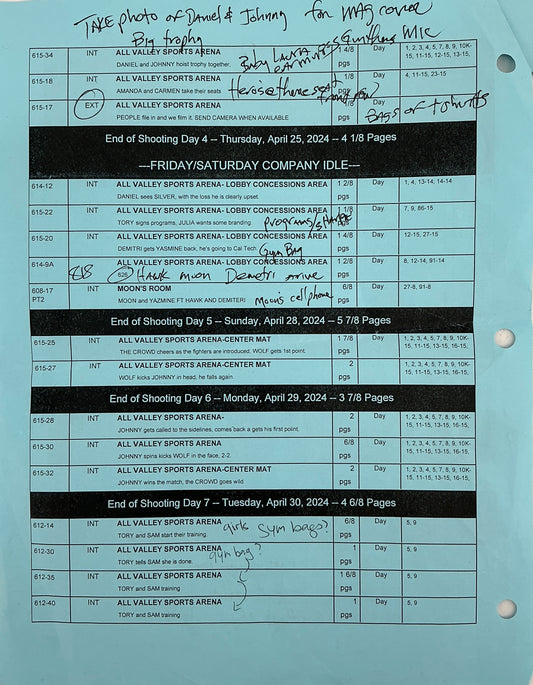 TAKE photo of Daniel & Johnny for MAG cover
Big trophy
615-34 INT ALL VALLEY SPORTS ARENA 1 4/8 pgs Day 1, 2, 3, 4, 5, 7, 8, 9, 10K-15, 11-15, 12-15, 13-15,
DANIEL and JOHNNY hoist trophy together. Baby LAURA MIC
615-18 INT ALL VALLEY SPORTS ARENA 1/8 pgs Day 4, 11-15, 23-15
AMANDA and CARMEN take their seats
615-17 EXT ALL VALLEY SPORTS ARENA 1/8 pgs Day BAGS of tshirts
PEOPLE file in and we film it. SEND CAMERA WHEN AVAILABLE
End of Shooting Day 4 -- Thursday, April 25, 2024 -- 4 1/8 Pages
---FRIDAY/SATURDAY COMPANY IDLE---
614-12 INT ALL VALLEY SPORTS ARENA- LOBBY CONCESSIONS AREA 1 2/8 pgs Day 1, 4, 13-14, 14-14
DANIEL sees SILVER, with the loss he is clearly upset.
615-22 INT ALL VALLEY SPORTS ARENA- LOBBY CONCESSIONS AREA 1 1/8 pgs Day 7, 9, 86-15
TORY signs programs, JULIA wants some branding. Programs/
615-20 INT ALL VALLEY SPORTS ARENA- LOBBY CONCESSIONS AREA 1 4/8 pgs Day 12-15, 27-15
DEMITRI gets YASMINE back, he's going to Cal Tech. Gym Bag
614-9A INT ALL VALLEY SPORTS ARENA- LOBBY CONCESSIONS AREA 1 2/8 pgs Day 8, 12-14, 91-14
818 S26 HAWK MOON Demetri arrive
608-17 PT2 INT MOON'S ROOM 6/8 pgs Day 27-8, 91-8
MOON and YAZMINE FT HAWK AND DEMITERI Moon's cell phone
End of Shooting Day 5 -- Sunday, April 28, 2024 -- 5 7/8 Pages
615-25 INT ALL VALLEY SPORTS ARENA-CENTER MAT 1 7/8 pgs Day 1, 2, 3, 4, 5, 7, 8, 9, 10K-15, 11-15, 13-15, 16-15,
THE CROWD cheers as the fighters are introduced, WOLF gets 1st point.
615-27 INT ALL VALLEY SPORTS ARENA-CENTER MAT 2 pgs Day 1, 2, 3, 4, 5, 7, 8, 9, 10K-15, 11-15, 13-15, 16-15,
WOLF kicks JOHNNY in head, he falls again.
End of Shooting Day 6 -- Monday, April 29, 2024 -- 3 7/8 Pages
615-28 INT ALL VALLEY SPORTS ARENA- 2 pgs Day 1, 2, 3, 4, 5, 7, 8, 9, 10K-15, 11-15, 13-15, 16-15,
JOHNNY gets called to the sidelines, comes back a gets his first point.
615-30 INT ALL VALLEY SPORTS ARENA 6/8 pgs Day 1, 2, 3, 4, 5, 7, 8, 9, 10K-15, 11-15, 13-15, 16-15,
JOHNNY spins kicks WOLF in the face, 2-2.
615-32 INT ALL VALLEY SPORTS ARENA-CENTER MAT 2 pgs Day 1, 2, 3, 4, 5, 7, 8, 9, 10K-15, 11-15, 13-15, 16-15,
JOHNNY wins the match, the CROWD goes wild.
End of Shooting Day 7 -- Tuesday, April 30, 2024 -- 4 6/8 Pages
612-14 INT ALL VALLEY SPORTS ARENA 6/8 pgs Day 5, 9
TORY and SAM start their training. girls gym bags?
612-30 INT ALL VALLEY SPORTS ARENA 1 pgs Day 5, 9
TORY tells SAM she is done. gym bag?
612-35 INT ALL VALLEY SPORTS ARENA 1 6/8 pgs Day 5, 9
TORY and SAM training
612-40 INT ALL VALLEY SPORTS ARENA 1 pgs Day 5, 9
TORY and SAM training